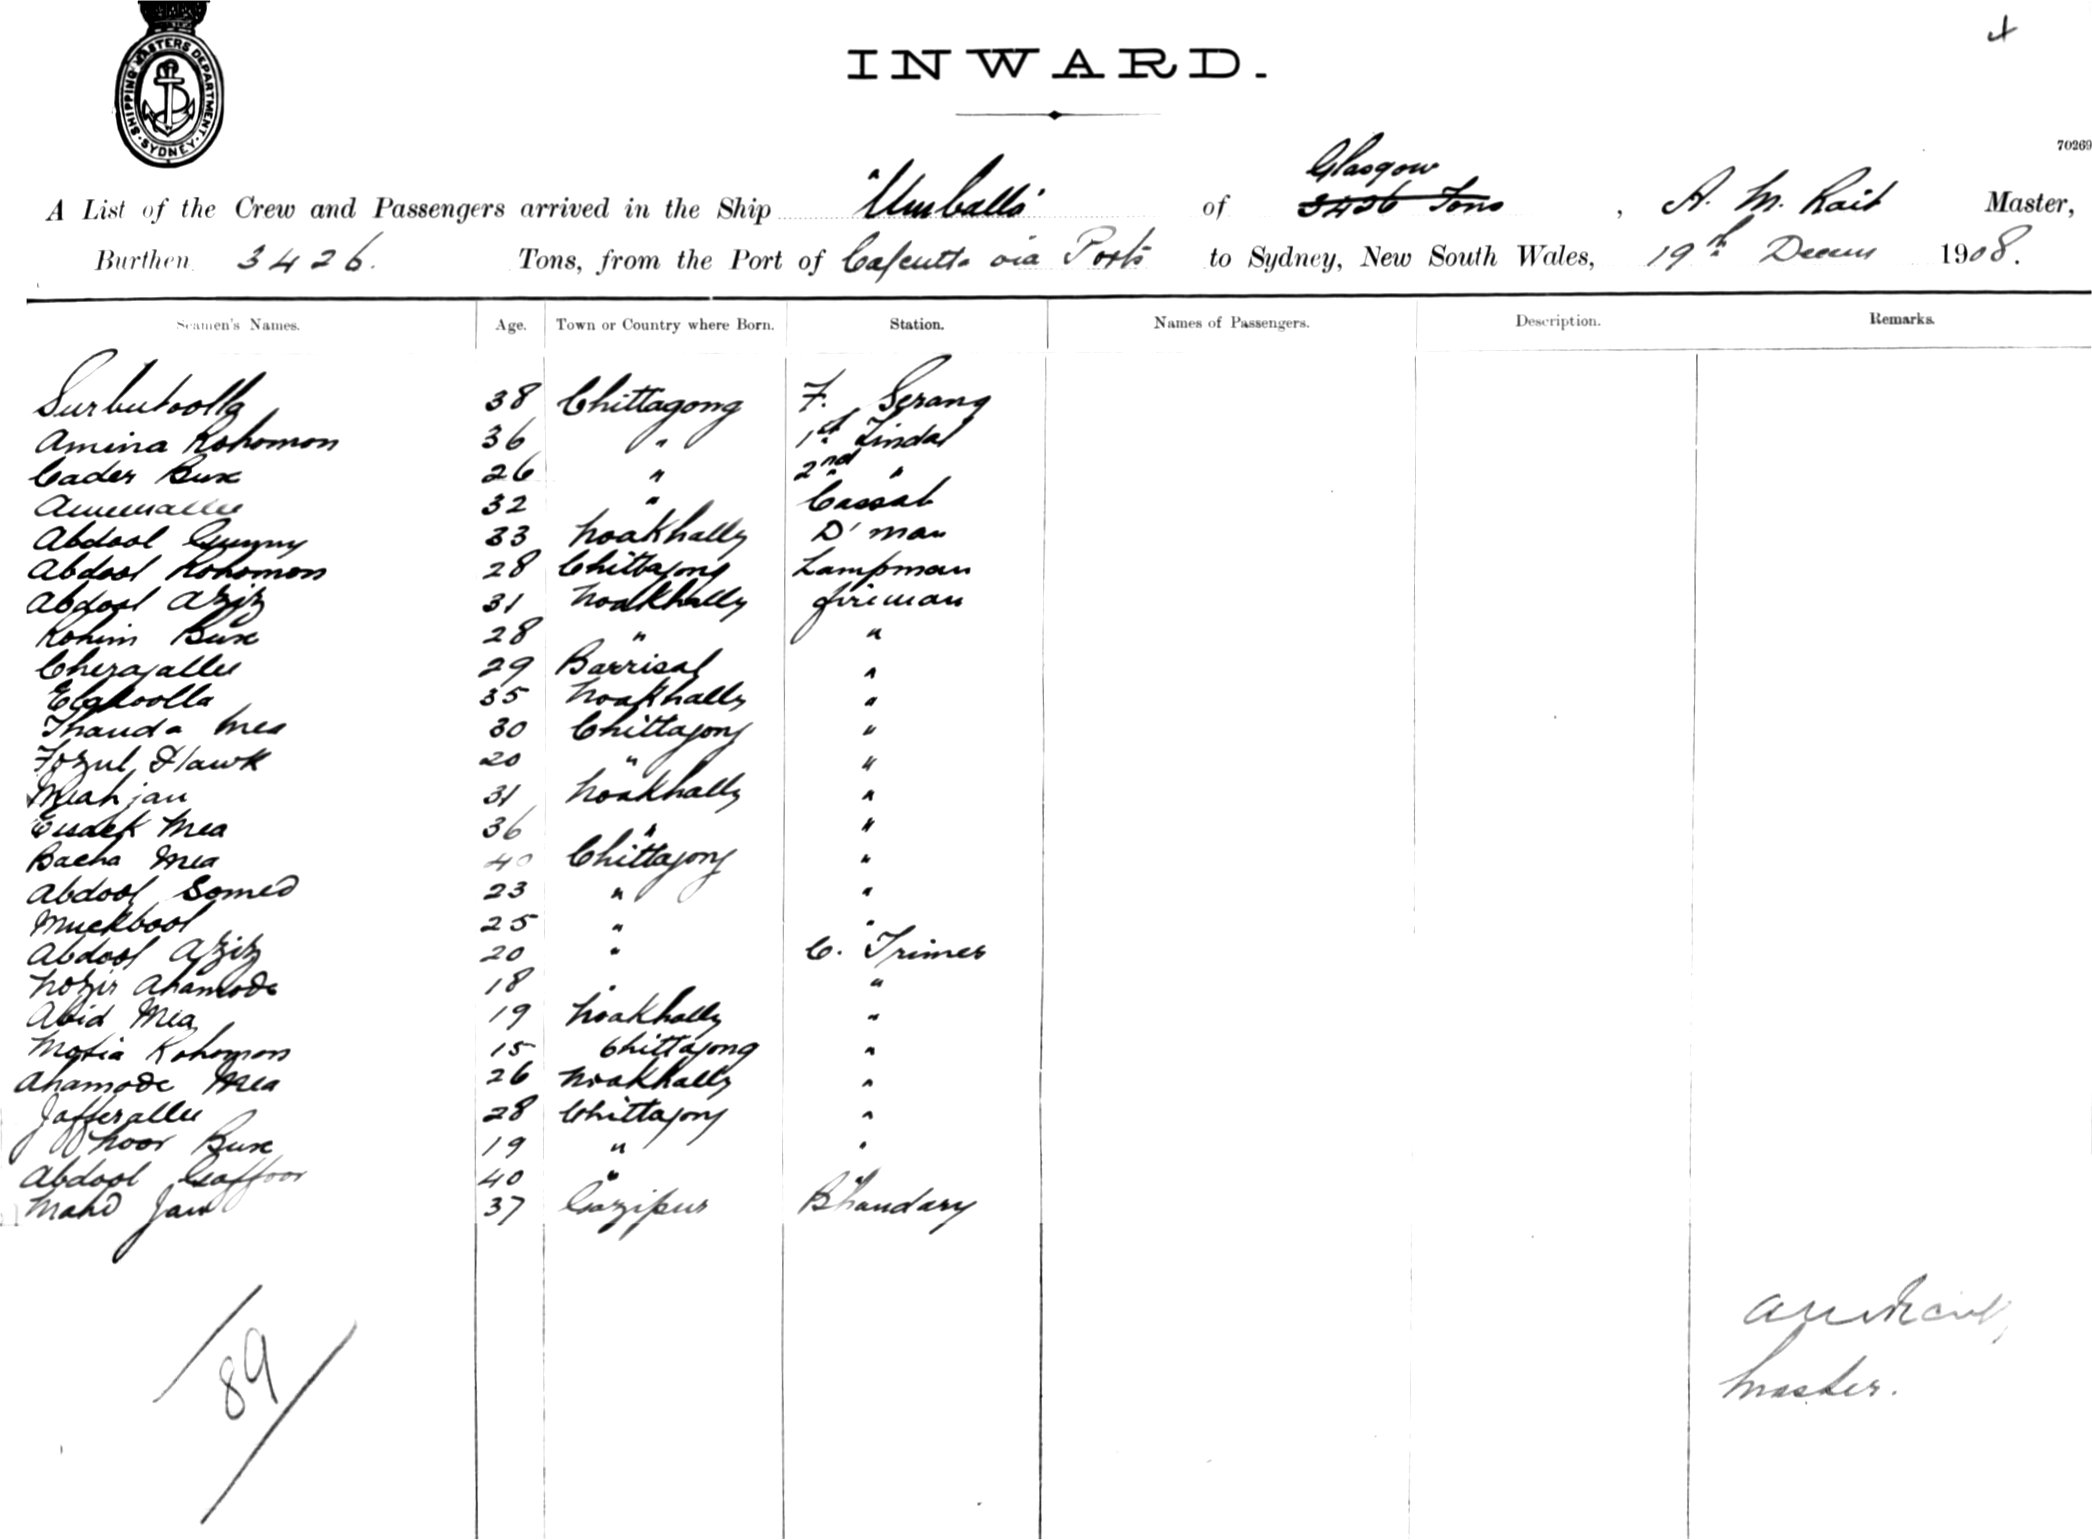 SHIPPING MASTERS DEPARTMENT
SYDNEY
4
INWARD.
70269
Glasgow
A List of the Crew and Passengers arrived in the Ship "Umballa" of 3426 Tons, A. M. Rait Master,
Burthen 3426. Tons, from the Port of Calcutta via Ports to Sydney, New South Wales, 19th Decem 1908.
Seamen's Names. Age. Town or Country where Born. Station. Names of Passengers. Description. Remarks.
Surbutoolla 38 Chittagong F. Serang
Amina Rohomon 36 " 1st Tindal
Cader Bux 26 " 2nd "
32 " Cassab
Abdool Gunny 33 Noakhally D'man
Abdool Rohomon 28 Chittagong Lampman
Abdool Aziz 31 Noakhally fireman
Rohim Bux 28 " "
Cheragallee 29 Barrisal "
35 Noakhally "
Thanda Mea 30 Chittagong "
Fozul Hawk 20 " "
Meahjan 31 Noakhally "
Eusack Mea 36 " "
Bacha Mea 40 Chittagong "
Abdool Somed 23 " "
Muckbool 25 " "
Abdool Aziz 20 " C. Trimer
Nozir Ahamode 18 " "
Abid Mea 19 Noakhally "
Motia Rohomon 15 Chittagong "
Ahamode Mea 26 Noakhally "
Jafferallee 28 Chittagong "
Noor Bux 19 " "
Abdool Gaffoor 40 " "
Mahd Jan 37 Gazipur Bhandary
89
A M Rait,
Master.